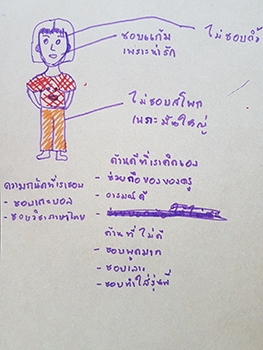 ชอบแก้ม
เพราะน่ารัก
ไม่ชอบคิ้ว
ไม่ชอบสะโพก
เพราะมันใหญ่
ความถนัดที่เราชอบ
- ชอบเตะบอล
- ชอบวิชาภาษาไทย
ด้านดีที่เราคิดเอง
- ช่วยถือของของครู
- อารมณ์ดี
ด้านที่ไม่ดี
- ชอบพูดมาก
- ชอบเลาะ